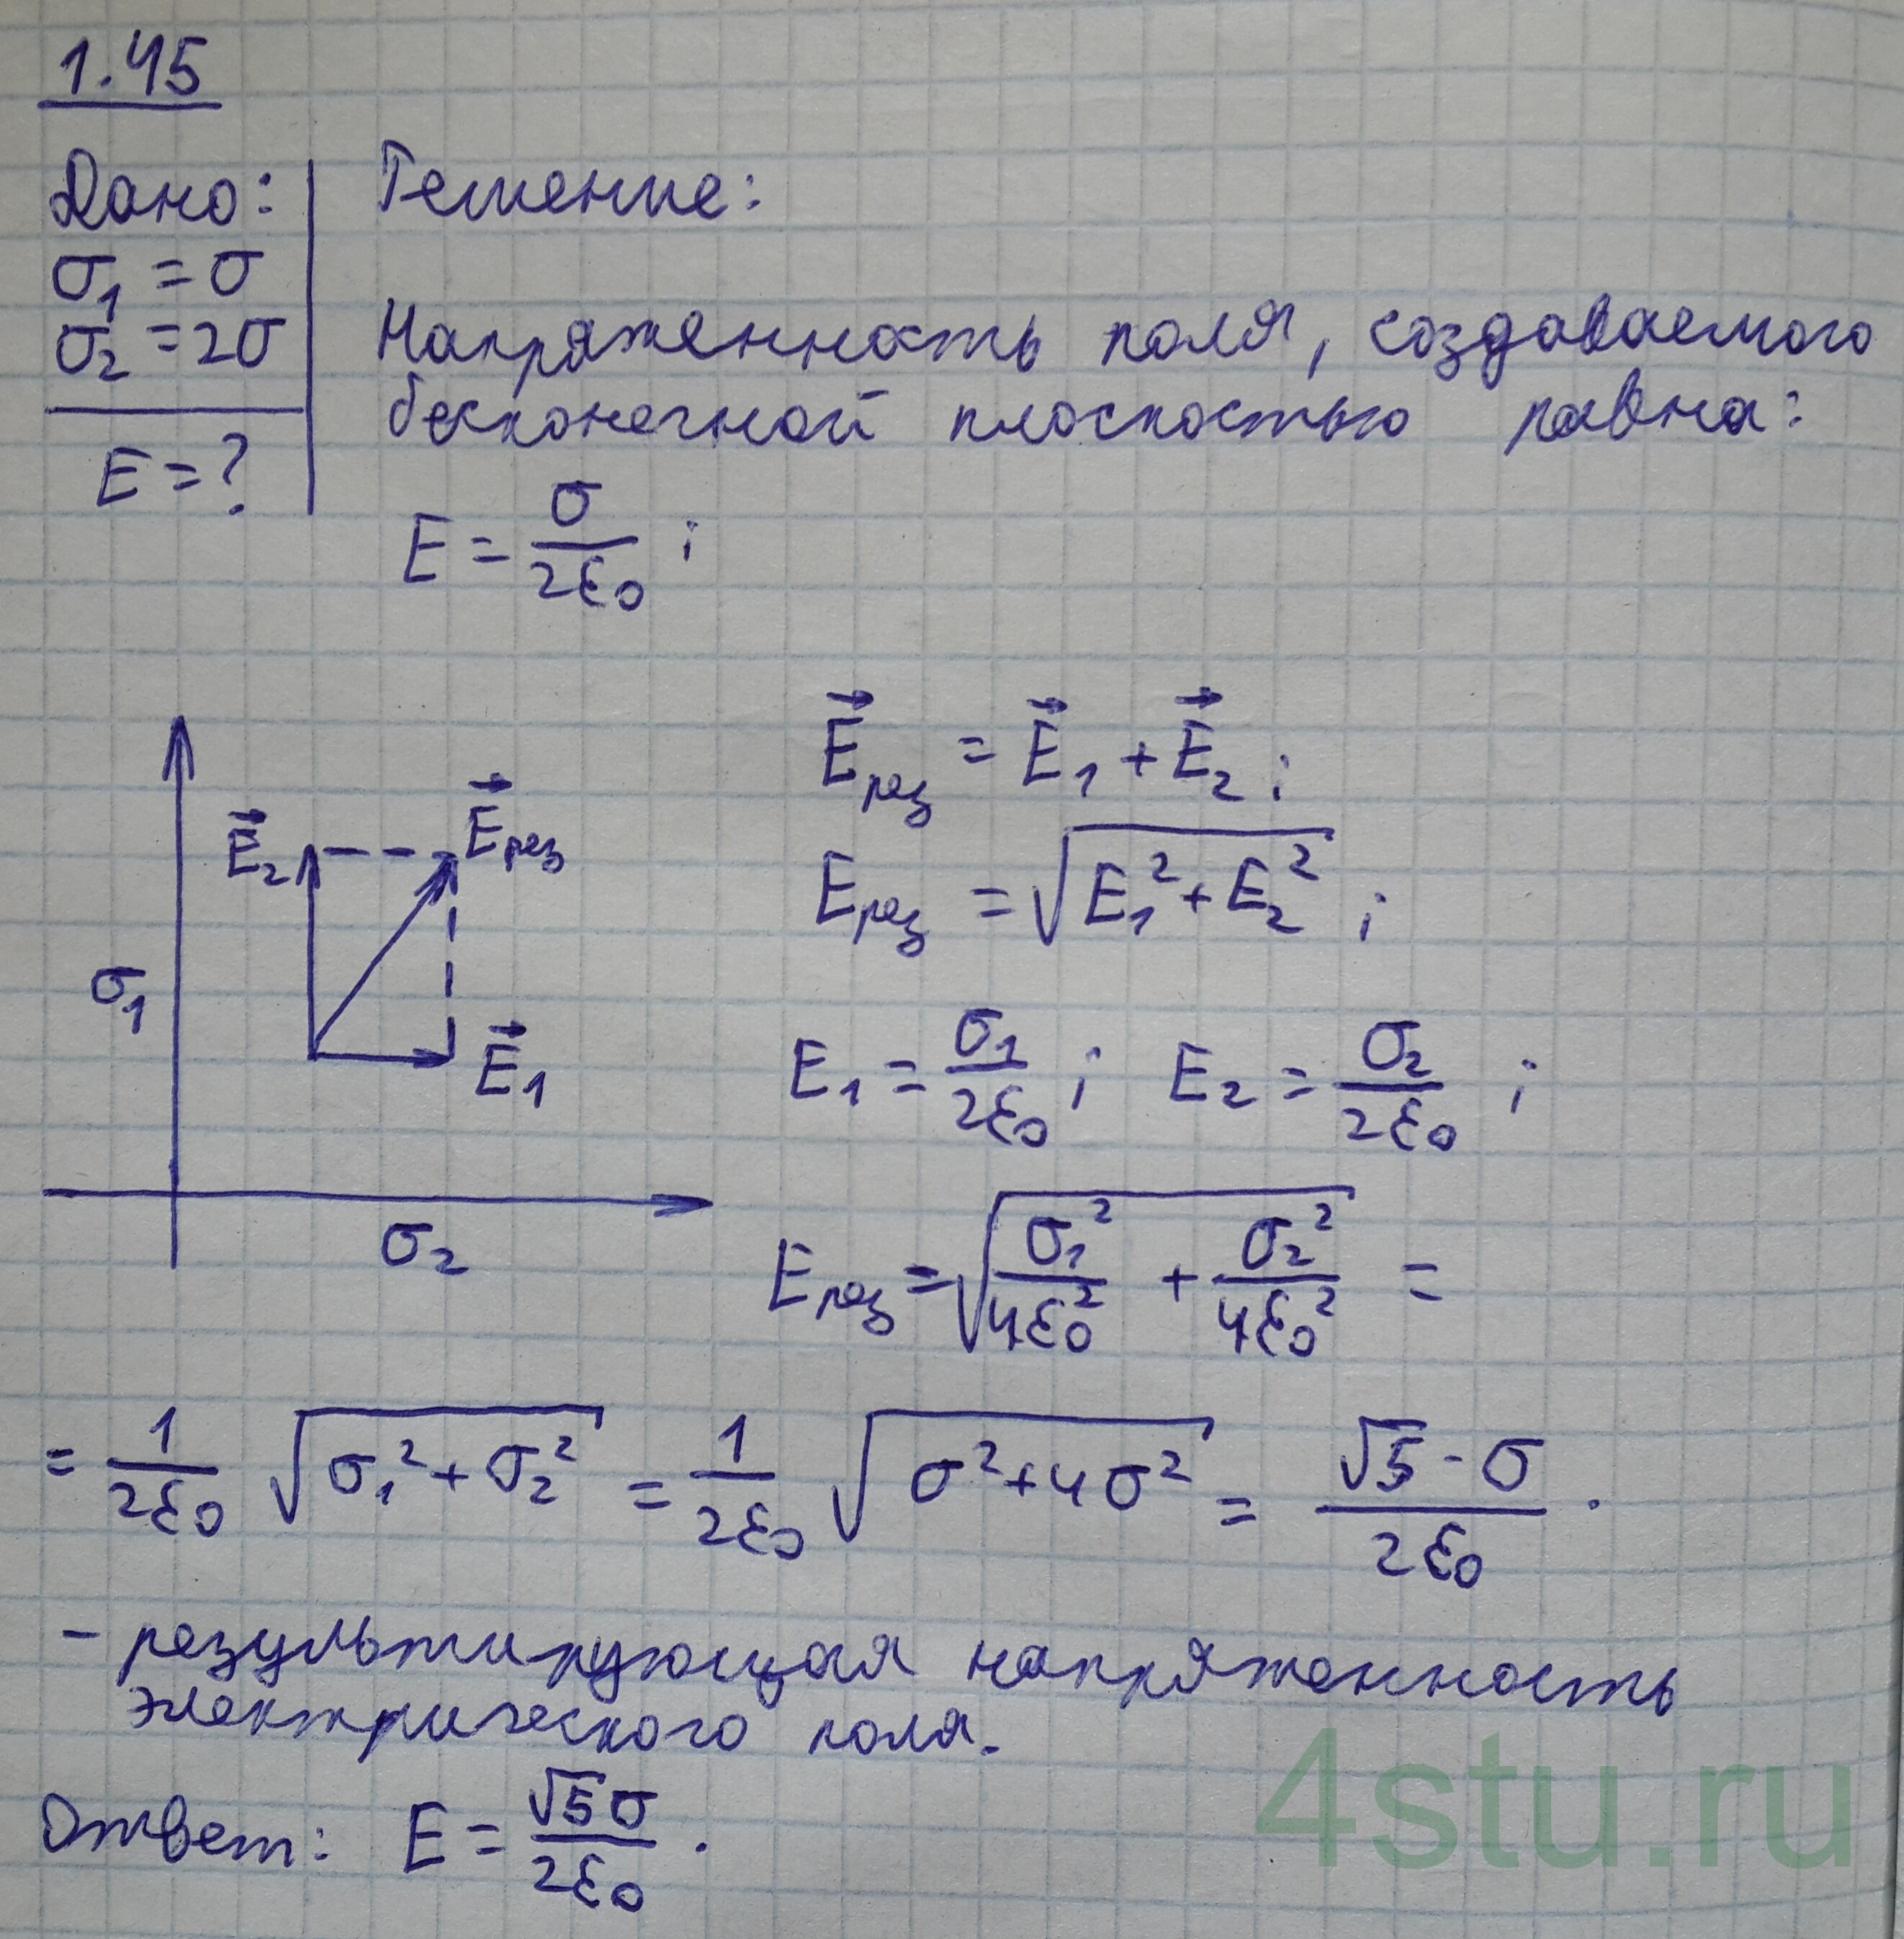 1.45
Дано:
σ₁ = σ
σ₂ = 2σ
E = ?
Решение:
Напряженность поля, создаваемого
бесконечной плоскостью равна:
E = σ/(2ε₀) ;
E⃗рез = E⃗₁ + E⃗₂ ;
Eрез = √(E₁² + E₂²) ;
E⃗₂
E⃗рез
σ₁
E⃗₁
σ₂
E₁ = σ₁/(2ε₀) ; E₂ = σ₂/(2ε₀) ;
Eрез = √(σ₁²/(4ε₀²) + σ₂²/(4ε₀²)) =
= 1/(2ε₀) √(σ₁² + σ₂²) = 1/(2ε₀) √(σ² + 4σ²) = (√5 · σ)/(2ε₀) .
– результирующая напряженность
электрического поля.
Ответ: E = √5σ/(2ε₀) .
4stu.ru